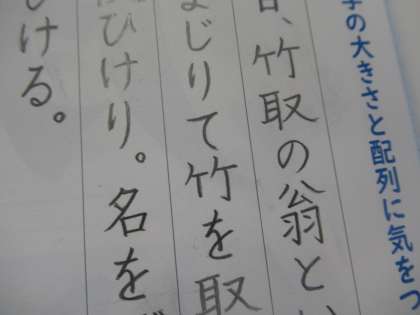 の大きさと配列に気をつ
、竹取の翁と
じりて竹を取
ひけり。名を
ける。